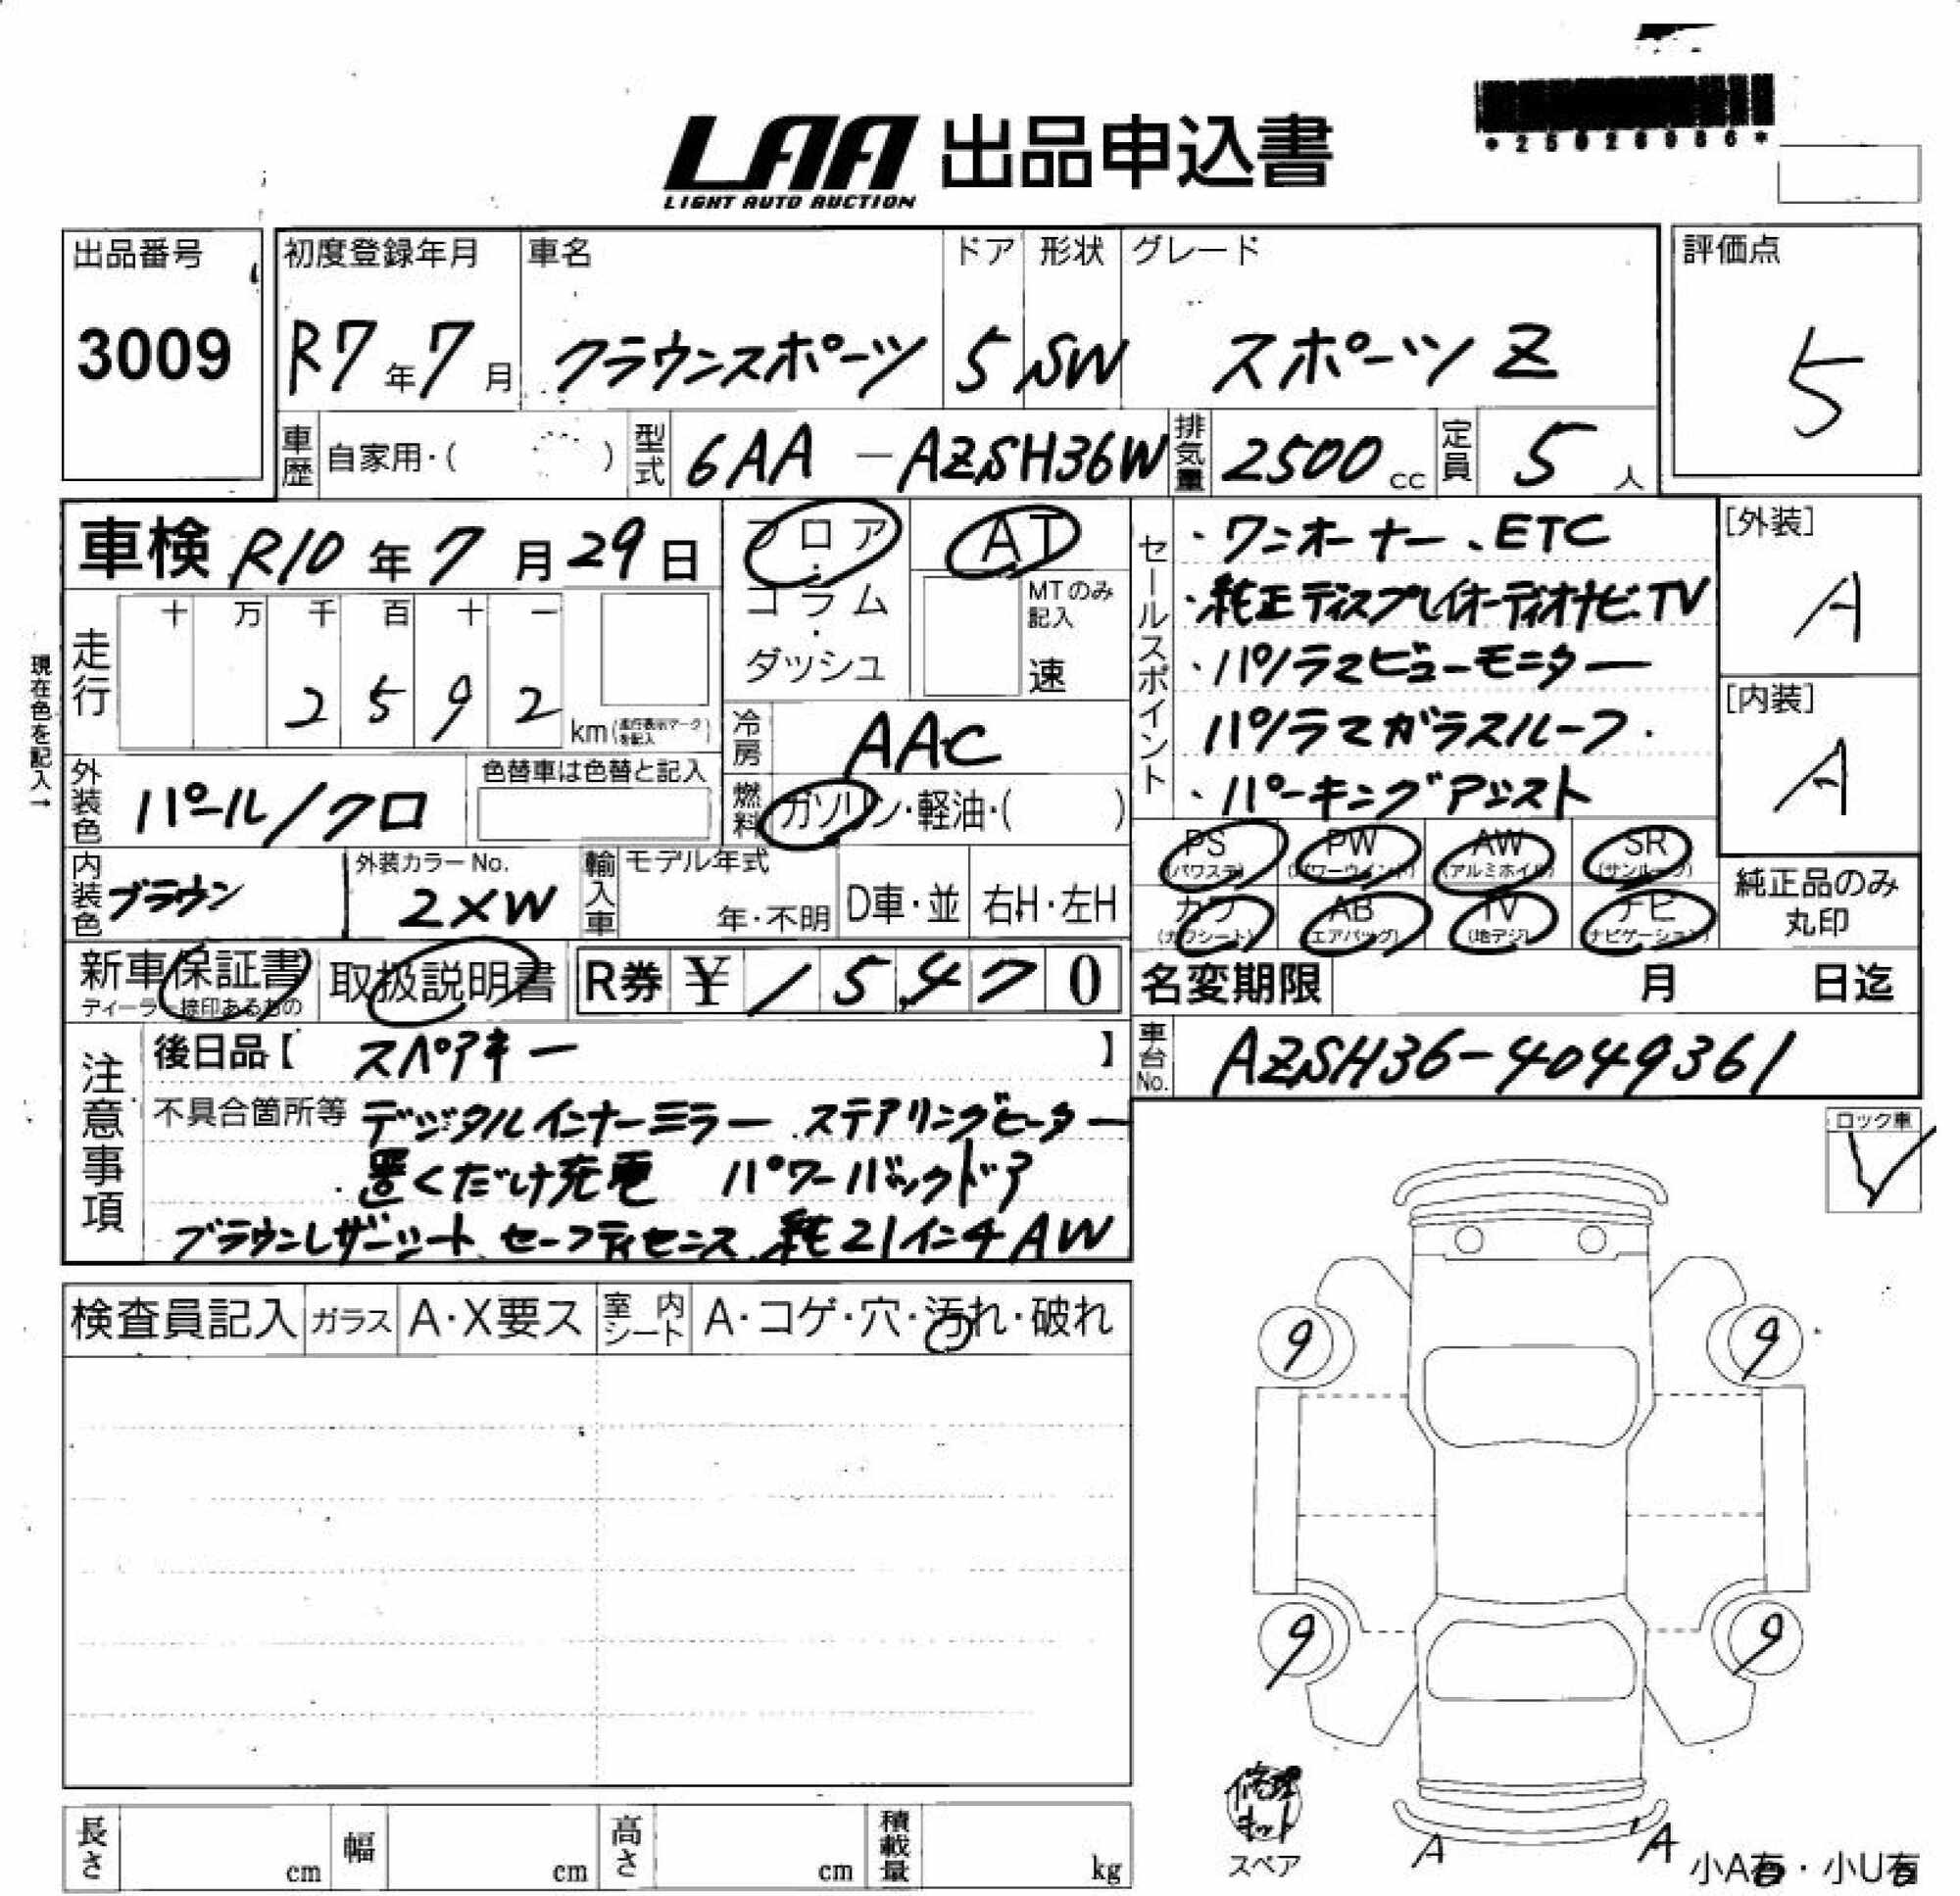 *25026986*
LAA 出品申込書
LIGHT AUTO AUCTION
出品番号
3009
初度登録年月 車名 ドア 形状 グレード
R7年7月 クラウンスポーツ 5 SW スポーツ Z
評価点
5
車歴 自家用・( ) 型式 6AA-AZSH36W 排気量 2500cc 定員 5人
車検 R10年7月29日
フロア・コラム・ダッシュ
AT
MTのみ記入
速
走行 十 万 千 百 十 一
2592 km(走行表示マークを記入)
現在色を記入→
冷房 AAC
燃料 ガソリン・軽油・( )
外装色 パール/クロ
色替車は色替と記入
内装色 ブラウン
外装カラーNo.
2XW
輸入車 モデル年式
年・不明 D車・並 右H・左H
セールスポイント
・ワンオーナー、ETC
・純正ディスプレイオーディオナビ.TV
・パノラマビューモニター
パノラマガラスルーフ.
、パーキングアシスト
[外装]
A
[内装]
A
PS PW AW SR
(パワステ) (パワーウインド) (アルミホイル) (サンルーフ)
カワ AB TV ナビ
(カワシート) (エアバッグ) (地デジ) (ナビゲーション)
純正品のみ
丸印
新車保証書 取扱説明書 R券 ¥15,470
ディーラー捺印あるもの
名変期限 月 日迄
車台No. AZSH36-4049361
注意事項
後日品【 スペアキー 】
不具合箇所等 デジタルインナーミラー ステアリングヒーター
置くだけ充電 パワーバックドア
ブラウンレザーシート、セーフティセンス、純正21インチAW
ロック車
検査員記入 ガラス A・X要ス 室内シート A・コゲ・穴・汚れ・破れ
9 9
9 9
修理キット
スペア
A A
小A有・小U有
長さ cm 幅 cm 高さ cm 積載量 kg